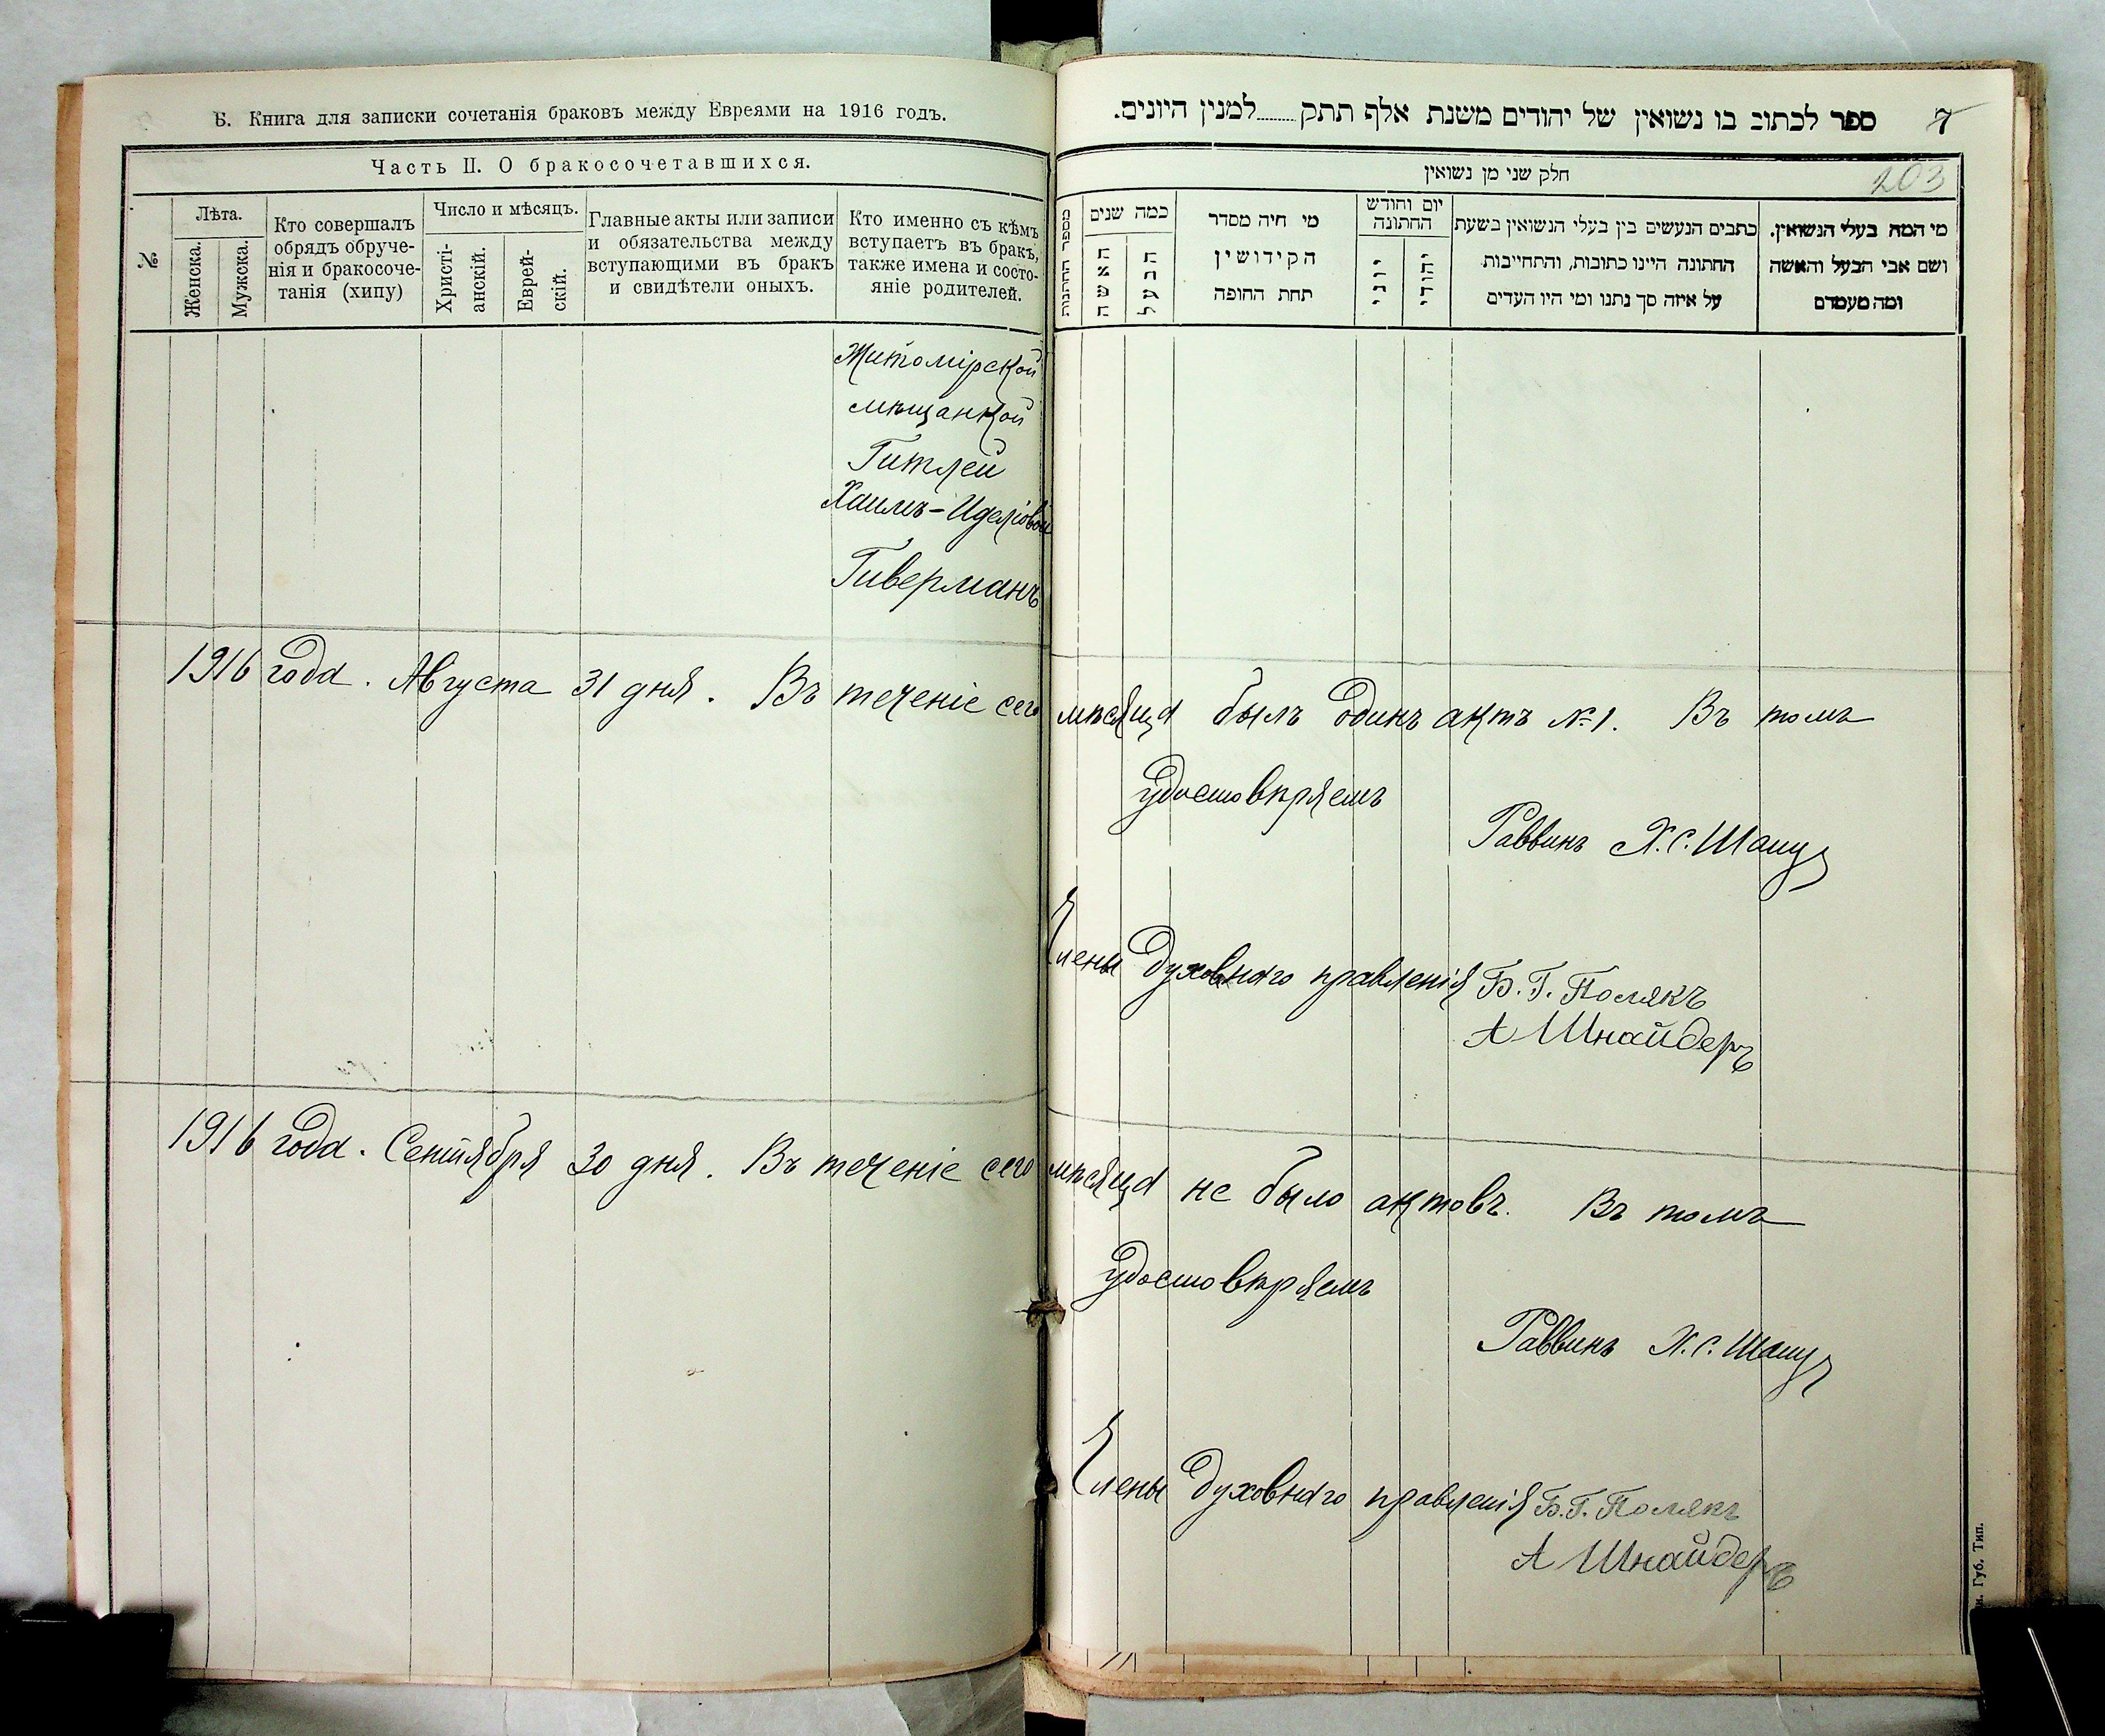 Б. Книга для записки сочетанія браковъ между Евреями на 1916 годъ.
Часть II. О бракосочетавшихся.
№
Лѣта.
Женска.
Мужска.
Кто совершалъ
обрядъ обруче-
нія и бракосоче-
танія (хипу)
Число и мѣсяцъ.
Христі-
анскій.
Еврей-
скій.
Главные акты или записи
и обязательства между
вступающими въ бракъ
и свидѣтели оныхъ.
Кто именно съ кѣмъ
вступаетъ въ бракъ,
также имена и состо-
яніе родителей.
Житомірской
мѣщанкой
Гитлей
Хаимъ-Иделіовой
Гиверманъ
ספר לכתוב בו נשואין של יהודים משנת אלף תתק........למנין היונים.
7
203
חלק שני מן נשואין
מספר החתונות
כמה שנים
האשה
הבעל
מי היה מסדר
הקידושין
תחת החופה
יום וחודש
החתונה
יוני
יהודי
כתבים הנעשים בין בעלי הנשואין בשעת
החתונה היינו כתובות, והתחייבות
על איזה סך נתנו ומי היו העדים
מי המה בעלי הנשואין.
ושם אבי הבעל והאשה
ומה מעמדם
1916 года. Августа 31 дня. Въ теченіе сего мѣсяца былъ одинъ актъ №1. Въ томъ
удостовѣряемъ
Раввинъ Х.С. Шапу
Члены духовнаго правленія Б.Г. Полякъ
А Шнайдеръ
1916 года. Сентября 30 дня. Въ теченіе сего мѣсяца не было актовъ. Въ томъ
удостовѣряемъ
Раввинъ Х.С. Шапу
Члены духовнаго правленія Б.Г. Полякъ
А Шнайдеръ
Губ. Тип.